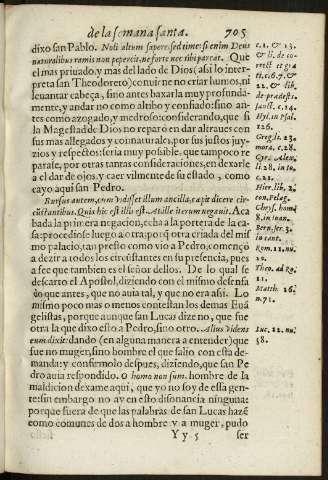 de la semana santa. 705
dixo san Pablo. Noli altum sapere, sed time: si enim Deus
naturalibus ramis non pepercit, ne forte nec tibi parcat. Que
el mas priuado, y mas del lado de Dios (asi lo inter-
preta san Theodoreto) conuie ne no criar lozania, ni
leuantar cabeça, sino antes baxarla muy profunda-
mente, y andar no como altibo y confiado: sino an-
tes como azogado, y medroso: considerando, que si
la Magestad de Dios no reparò en dar altraues con
sus mas allegados y connaturales, por sus justos juy-
zios y respectos: seria muy posible, que tampoco re
parase, por otras tantas consideraciones, en dexarle
a el dar de ojos, y caer vilmente de su estado, como
cayo aqui san Pedro.
Rursus autem, cum vidisset illum ancilla, cæpit dicere cir-
cūstantibus. Quia hic est illis est. At ille iterum negauit. Aca
bada la primera negacion, echa a la portera de la ca-
sa: procediose luego a otra q̃ a otra criada del mis
mo palacio, tan presto como vio a Pedro, començò
a dezir a todos los circūstantes en su presencia, pues
a fee que tambien es el señor dellos. De lo qual se
descarto el Apostol, diziendo con el mismo defensa
do que antes, que no auia tal, y que no era asi. Lo
mismo poco mas o menos contestan los demas Euā
gelistas, porque aunque san Lucas dize no, que fue
otra la que dixo esto a Pedro, sino otro. Alius videns
eum dixit: dando (en alguna manera a entender) que
fue no muger, sino hombre el que salio con esta de-
manda: y confirmolo despues, diziendo, que san Pe
dro auia respondido. O homo non sum. hombre de la
maldicion dexame aqui, que yo no soy de essa gen-
te: sin embargo no ay en esto disonancia ninguna:
porque fuera de que las palabras de san Lucas hazē
como comunes de dos a hombre y a muger, pudo
Y y 5 ser
c. 2. & 13.
& li. de co-
rrect. et gra
ti. c. 6. 7. &
22. & lib.
de prædesti.
sanct. c. 14.
Hyl. in Psal.
126.
Greg. li. 23.
mora. c. 28.
Cyr. Alexā.
li 28. in Io,
c. 21.
Hier. lib. 2.
con, Pelag.
Chrys. homi
8. in ioan.
Bern. ser. 3.
in cant.
Rom. 11. nu.
20.
Theo. ad Ro.
11.
Matth. 26.
n. 71.
Luc. 22. nu.
58.